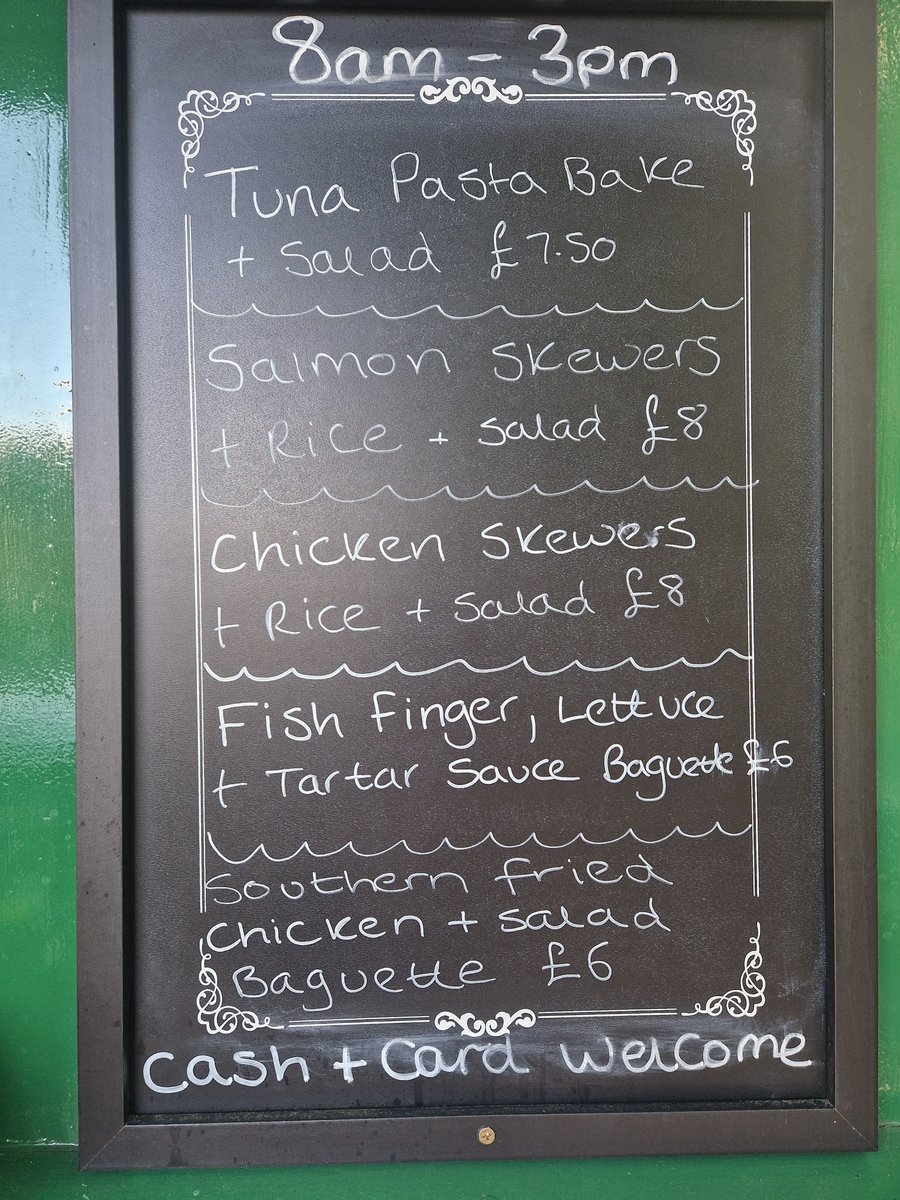 8am - 3pm
Tuna Pasta Bake
+ Salad £7.50
Salmon Skewers
+ Rice + Salad £8
Chicken Skewers
+ Rice + Salad £8
Fish Finger, Lettuce
+ Tartar Sauce Baguette £6
Southern Fried
Chicken + Salad
Baguette £6
Cash + Card Welcome